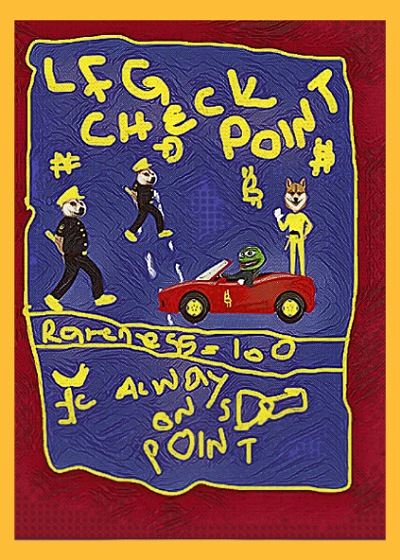 LFG
CHECK
POINT
Rareness = 100
ALWAY
ON S
POINT